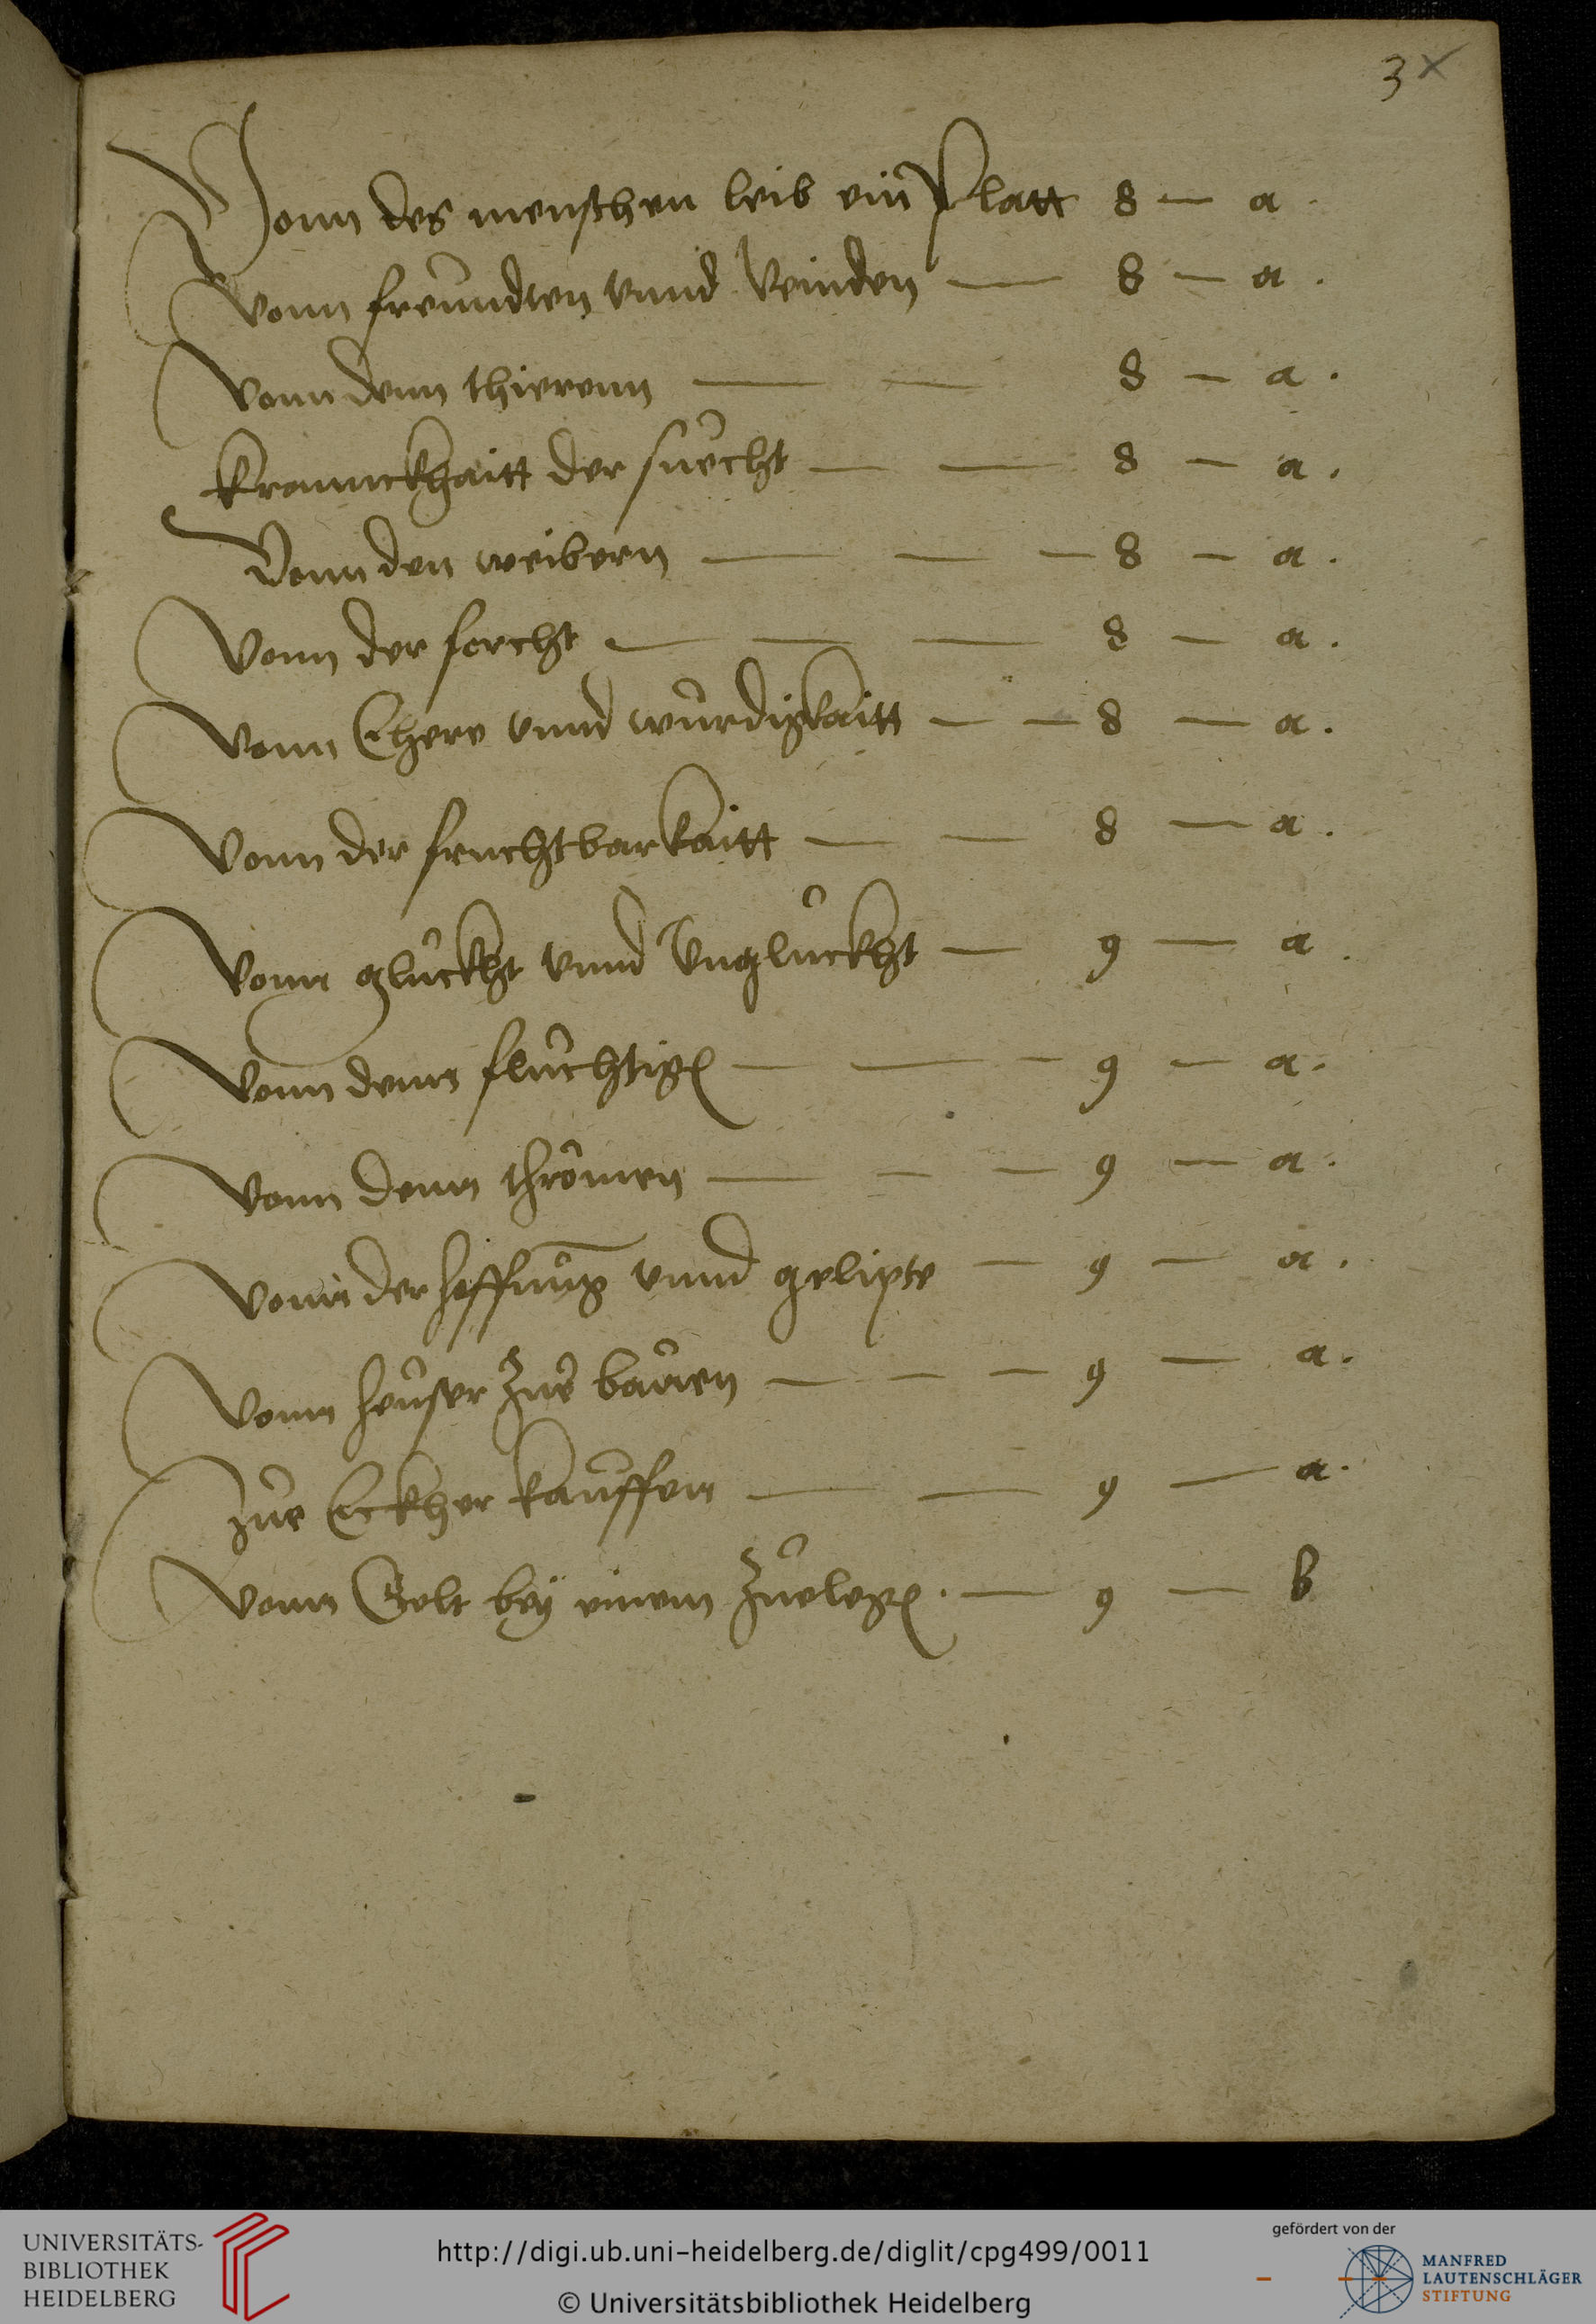 3
Vonn des menschen leib ein Platt 8 — a.
Vonn freundten vnnd Veinden — 8 — a.
Vonn denn thierenn — — 8 — a.
Krannckhaitt der suecht — — 8 — a.
Vonn den weibern — — — 8 — a.
Vonn der forcht — — — 8 — a.
Vonn Ehere vnnd wurdigkaitt — — 8 — a.
Vonn der fruchtbarkaitt — — 8 — a.
Vonn gluckht vnnd Vngluckht — 9 — a.
Vonn denn fluchtigen — — — 9 — a.
Vonn denn thrömen — — — 9 — a.
Vonn der hoffnung vnnd gelipte — 9 — a.
Vonn heuser Zue bauen — — — 9 — a.
Zue Eckher kauffen — — 9 — a.
Vonn Gelt bey einem Zuelegen. — 9 — b
UNIVERSITÄTS-
BIBLIOTHEK
HEIDELBERG
http://digi.ub.uni-heidelberg.de/diglit/cpg499/0011
© Universitätsbibliothek Heidelberg
gefördert von der
MANFRED
LAUTENSCHLÄGER
STIFTUNG